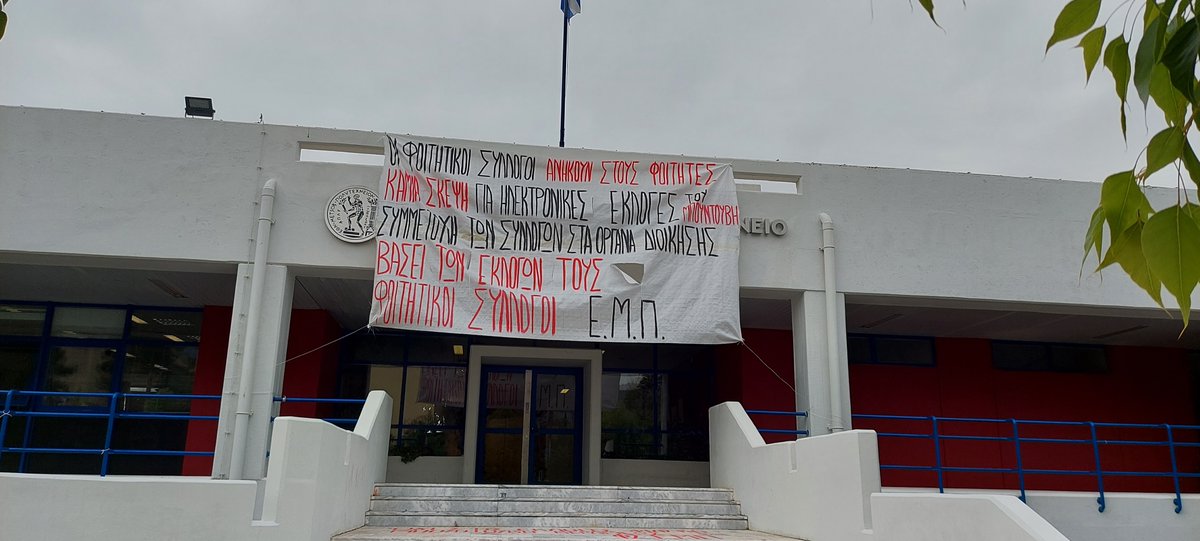 ΟΙ ΦΟΙΤΗΤΙΚΟΙ ΣΥΛΛΟΓΟΙ ΑΝΗΚΟΥΝ ΣΤΟΥΣ ΦΟΙΤΗΤΕΣ
ΚΑΜΙΑ ΣΚΕΨΗ ΓΙΑ ΗΛΕΚΤΡΟΝΙΚΕΣ ΕΚΛΟΓΕΣ ΤΟΥ ΜΠΟΥΝΤΟΥΒΗ
ΣΥΜΜΕΤΟΧΗ ΤΩΝ ΣΥΛΛΟΓΩΝ ΣΤΑ ΟΡΓΑΝΑ ΔΙΟΙΚΗΣΗΣ
ΒΑΣΕΙ ΤΩΝ ΕΚΛΟΓΩΝ ΤΟΥΣ
ΦΟΙΤΗΤΙΚΟΙ ΣΥΛΛΟΓΟΙ Ε.Μ.Π.
ΝΕΙΟ